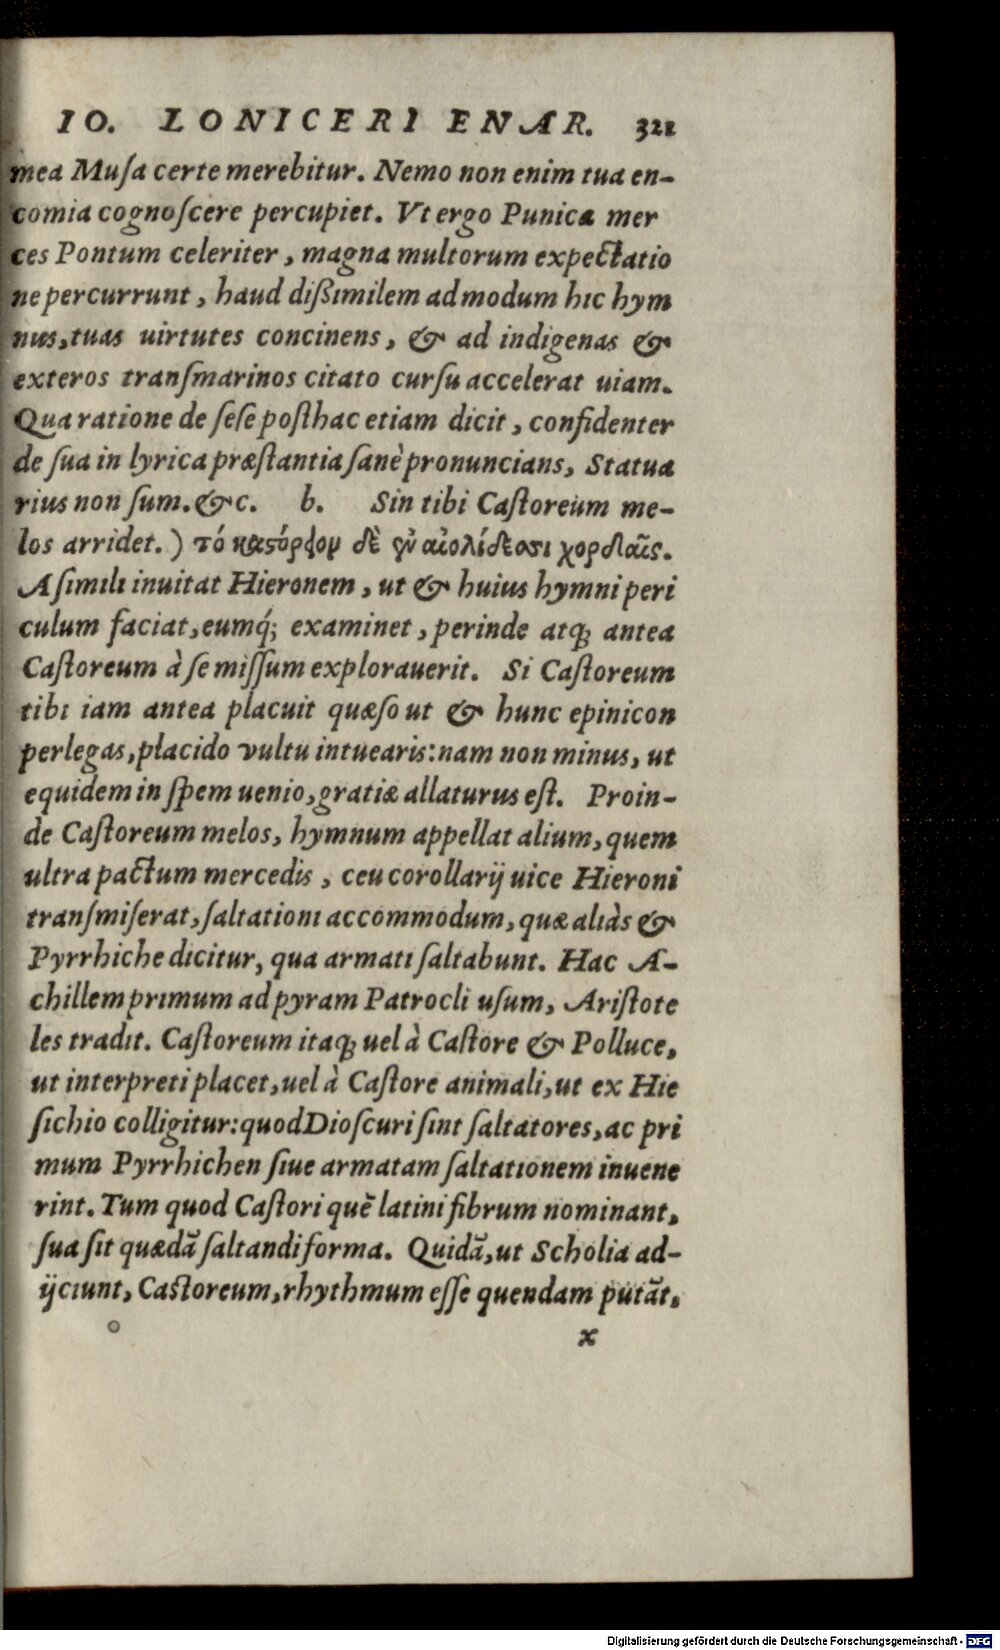 IO. LONICERI ENAR. 321
mea Musa certe merebitur. Nemo non enim tua en-
comia cognoscere percupiet. Vt ergo Punicæ mer
ces Pontum celeriter, magna multorum expectatio
ne percurrunt, haud dißimilem ad modum hic hym
nus, tuas uirtutes concinens, & ad indigenas &
exteros transmarinos citato cursu accelerat uiam.
Qua ratione de sese posthac etiam dicit, confidenter
de sua in lyrica præstantia sanè pronuncians, Statua
rius non sum. &c. b. Sin tibi Castoreum me-
los arridet.) τό καστόρειον δὲ ἐν αἰολίδεσσι χορδαῖς.
A simili inuitat Hieronem, ut & huius hymni peri
culum faciat, eumq́; examinet, perinde atq; antea
Castoreum à se missum explorauerit. Si Castoreum
tibi iam antea placuit quæso ut & hunc epinicon
perlegas, placido vultu intuearis: nam non minus, ut
equidem in spem uenio, gratiæ allaturus est. Proin-
de Castoreum melos, hymnum appellat alium, quem
ultra pactum mercedis, ceu corollarij uice Hieroni
transmiserat, saltationi accommodum, quæ aliàs &
Pyrrhiche dicitur, qua armati saltabunt. Hac A-
chillem primum ad pyram Patrocli usum, Aristote
les tradit. Castoreum itaq; uel à Castore & Polluce,
ut interpreti placet, uel à Castore animali, ut ex Hie
sichio colligitur: quod Dioscuri sint saltatores, ac pri
mum Pyrrhichen siue armatam saltationem inuene
rint. Tum quod Castori quē latini fibrum nominant,
sua sit quædā saltandi forma. Quidā, ut Scholia ad-
ijciunt, Castoreum, rhythmum esse quendam putāt,
x
Digitalisierung gefördert durch die Deutsche Forschungsgemeinschaft - DFG